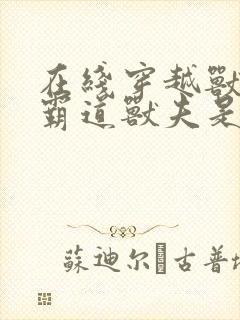 在綫穿越獸
霸道獸夫是
蘇迪尔 古普塔